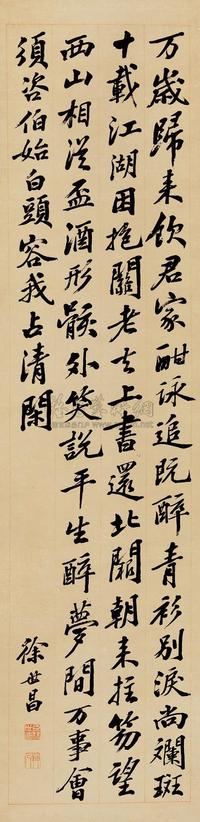 万歲歸来飲君家酣詠追既醉青衫别淚尚斕斑
十載江湖困抱關老去上書還北闕朝来拄笏望
西山相從盃酒形骸外笑說平生醉夢間万事會
須咨伯始白頭容我占清閑
徐世昌